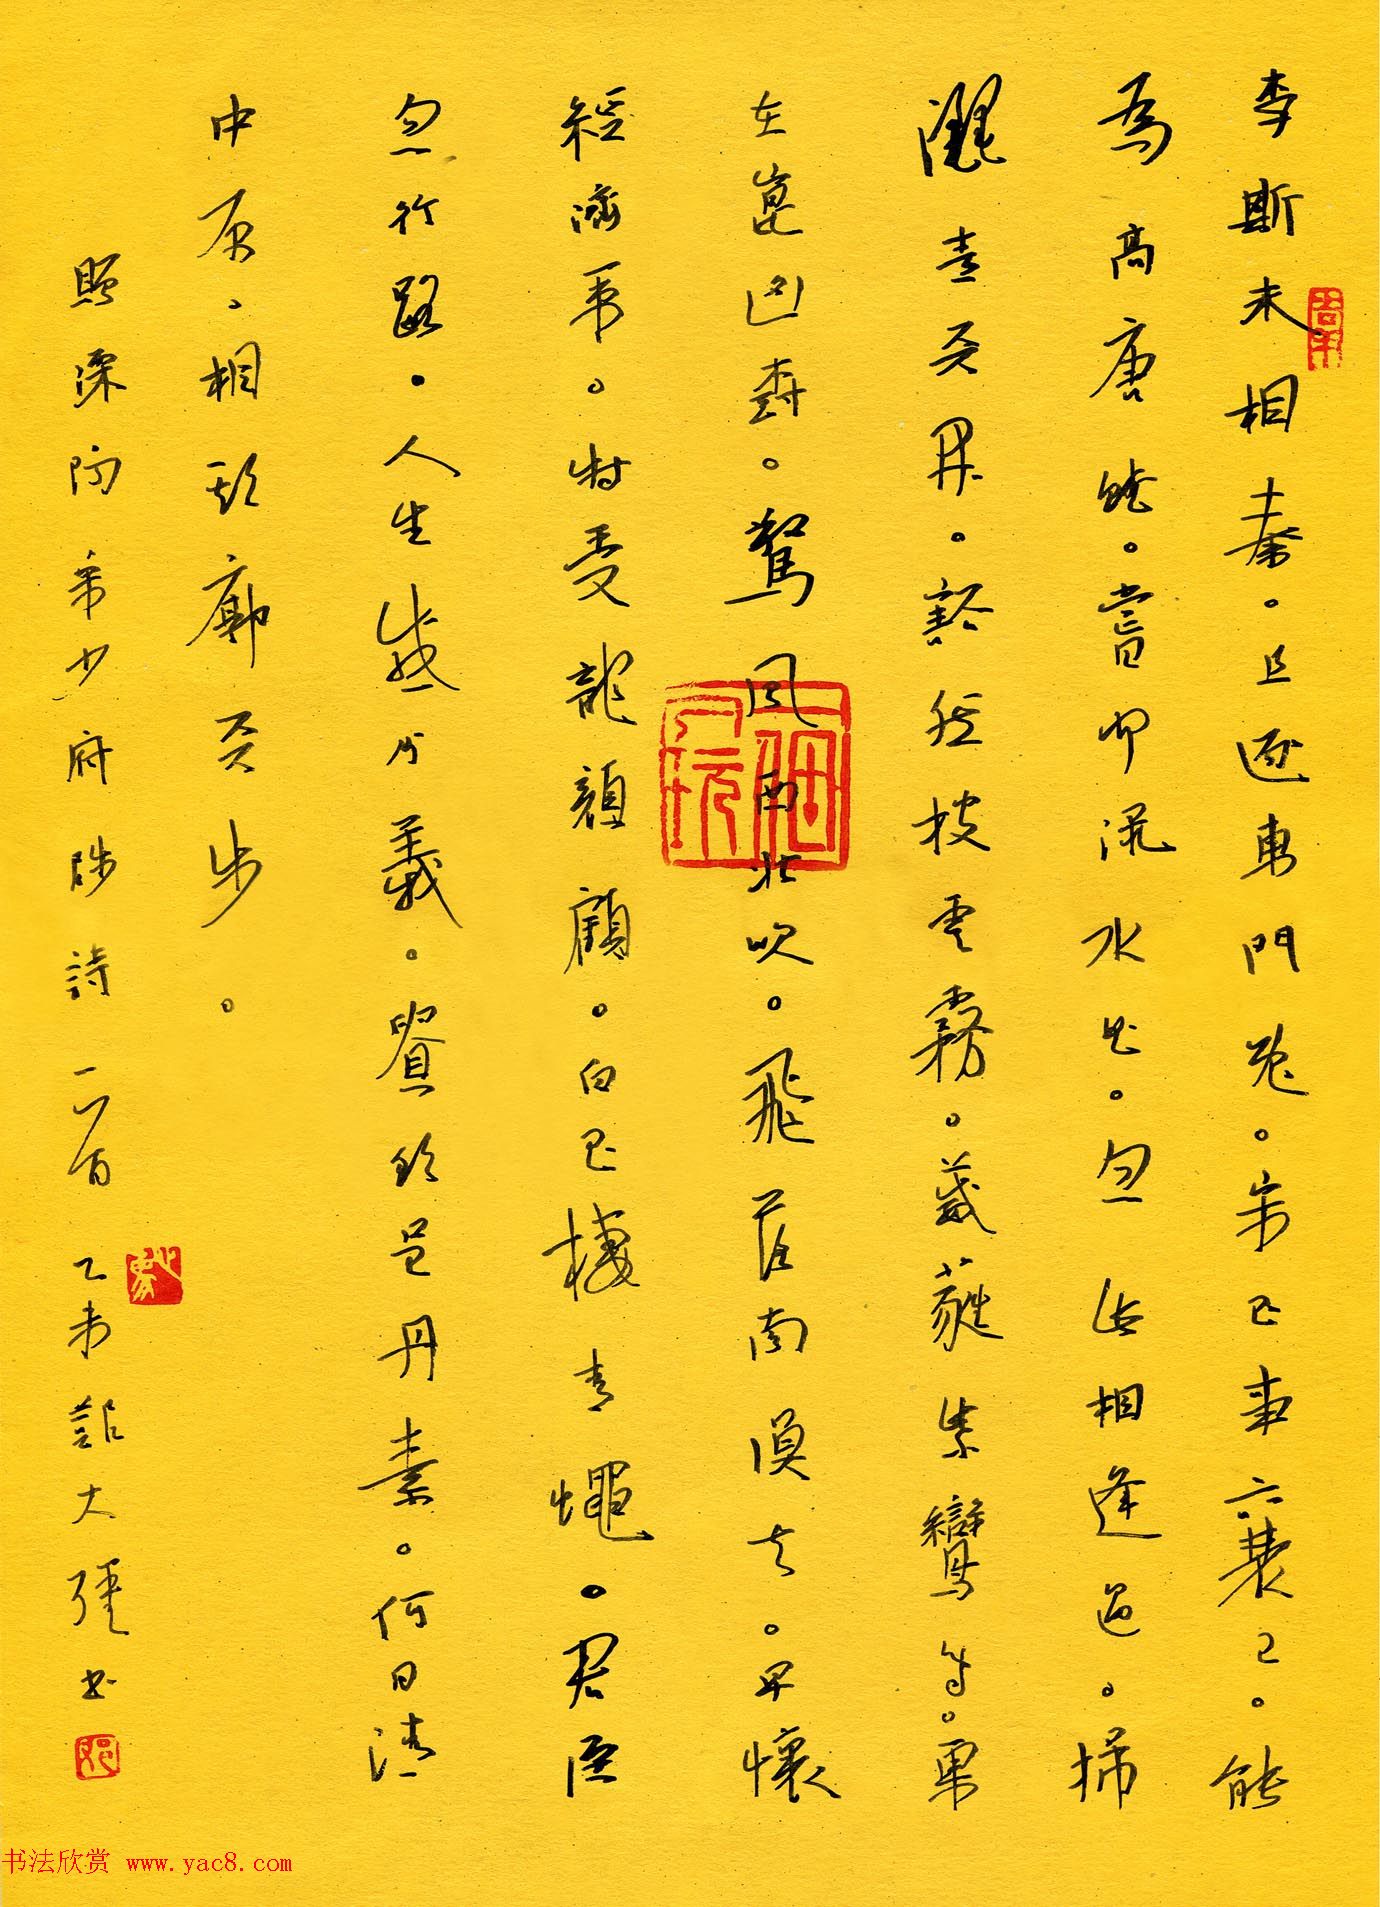 李斯未相秦。且逐東門兔。宋玉事襄王。能
為高唐賦。嘗聞淥水曲。忽此相逢遇。掃
灑青天開。豁然披雲霧。葳蕤紫鸞鳥。巢
在崑山樹。驚風西北吹。飛落南溟去。早懷
經濟策。特受龍顏顧。白玉棲青蠅。君臣
忽行路。人生感分義。貴欲呈丹素。何日清
中原。相期廓天步。
贈溧陽宋少府陟詩一首 乙未 大強書
书法欣赏 www.yac8.com